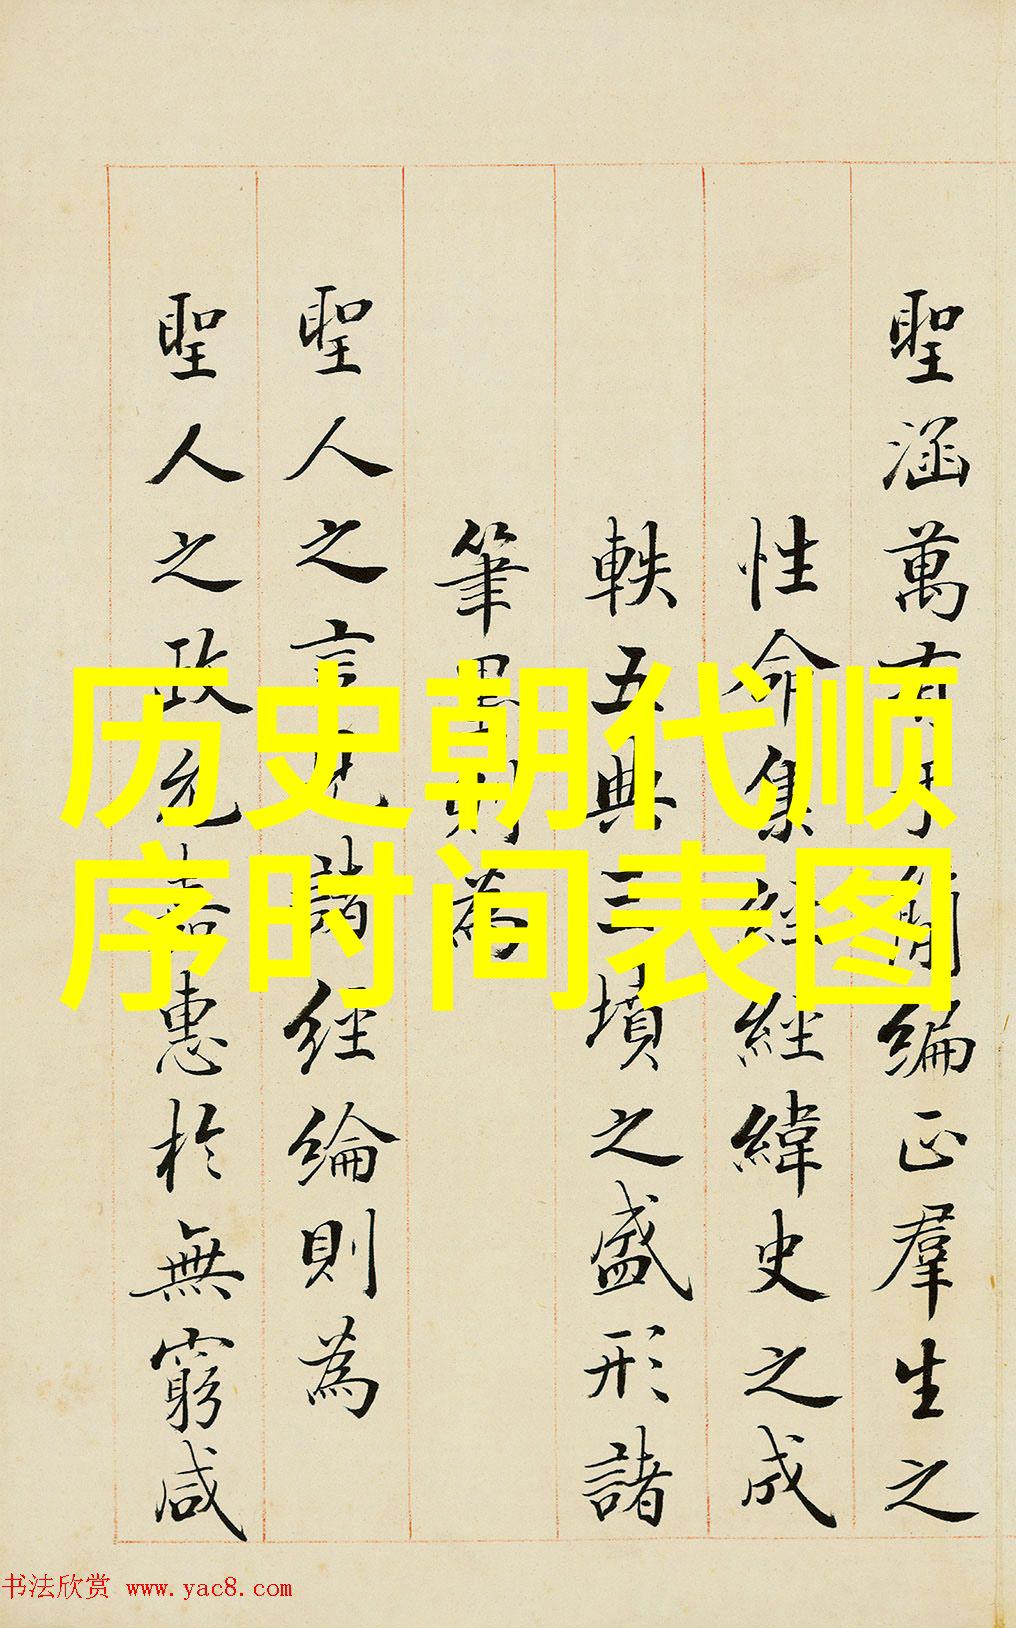 历史朝代顺
序时间表图
聖涵萬有于簡編正羣生之
性命集經緯史之成
軼五典三墳之盛形諸
筆墨則為
聖人之言見諸經綸則為
聖人之政允嘉惠於無窮咸
书法欣赏 www.yac8.com